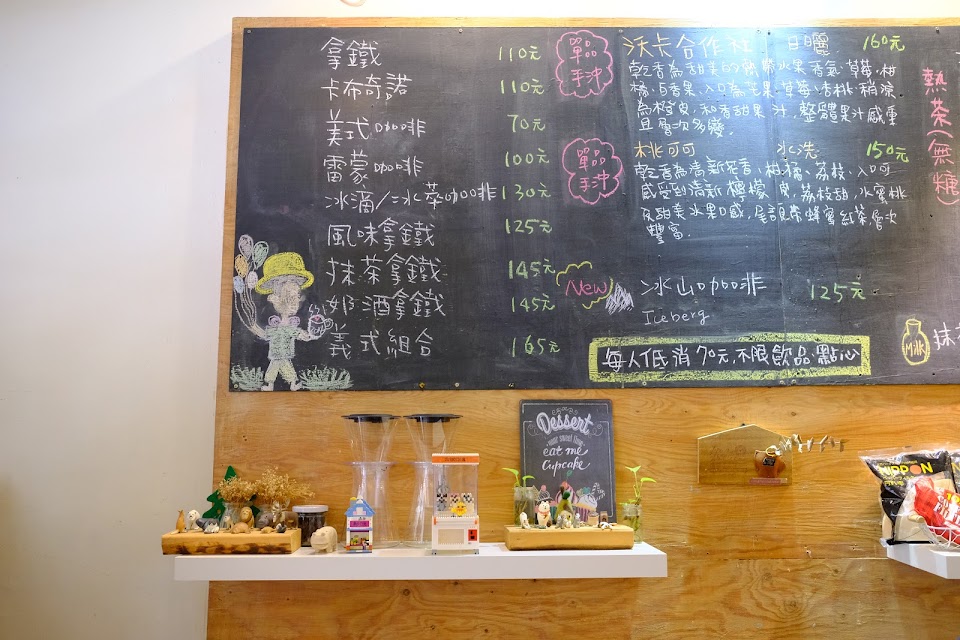 拿鐵 110元
卡布奇諾 110元
美式咖啡 70元
雷蒙咖啡 100元
冰滴/冰萃咖啡 130元
風味拿鐵 125元
抹茶拿鐵 145元
奶酒拿鐵 145元
義式組合 165元
單品
手沖
沃卡合作社 日曬 160元
乾香為甜美的熱帶水果香氣,草莓,柑
橘,百香果,入口為芒果,草莓,香桃,稍涼
為橙皮,和香甜果汁,整體果汁感重
且層次多變.
單品
手沖
桃可可 水洗 150元
乾香為清新花香,柑橘、荔枝、入口可
感受到清新檸檬皮,荔枝甜,水蜜桃
及甜美水果口感,尾韻帶蜂蜜紅茶,層次
豐富.
New
冰山咖啡 125元
Iceberg
每人低消70元,不限飲品、點心
熱茶(無糖)
Milk
抹
Dessert
eat me
Cupcake
NIPPON